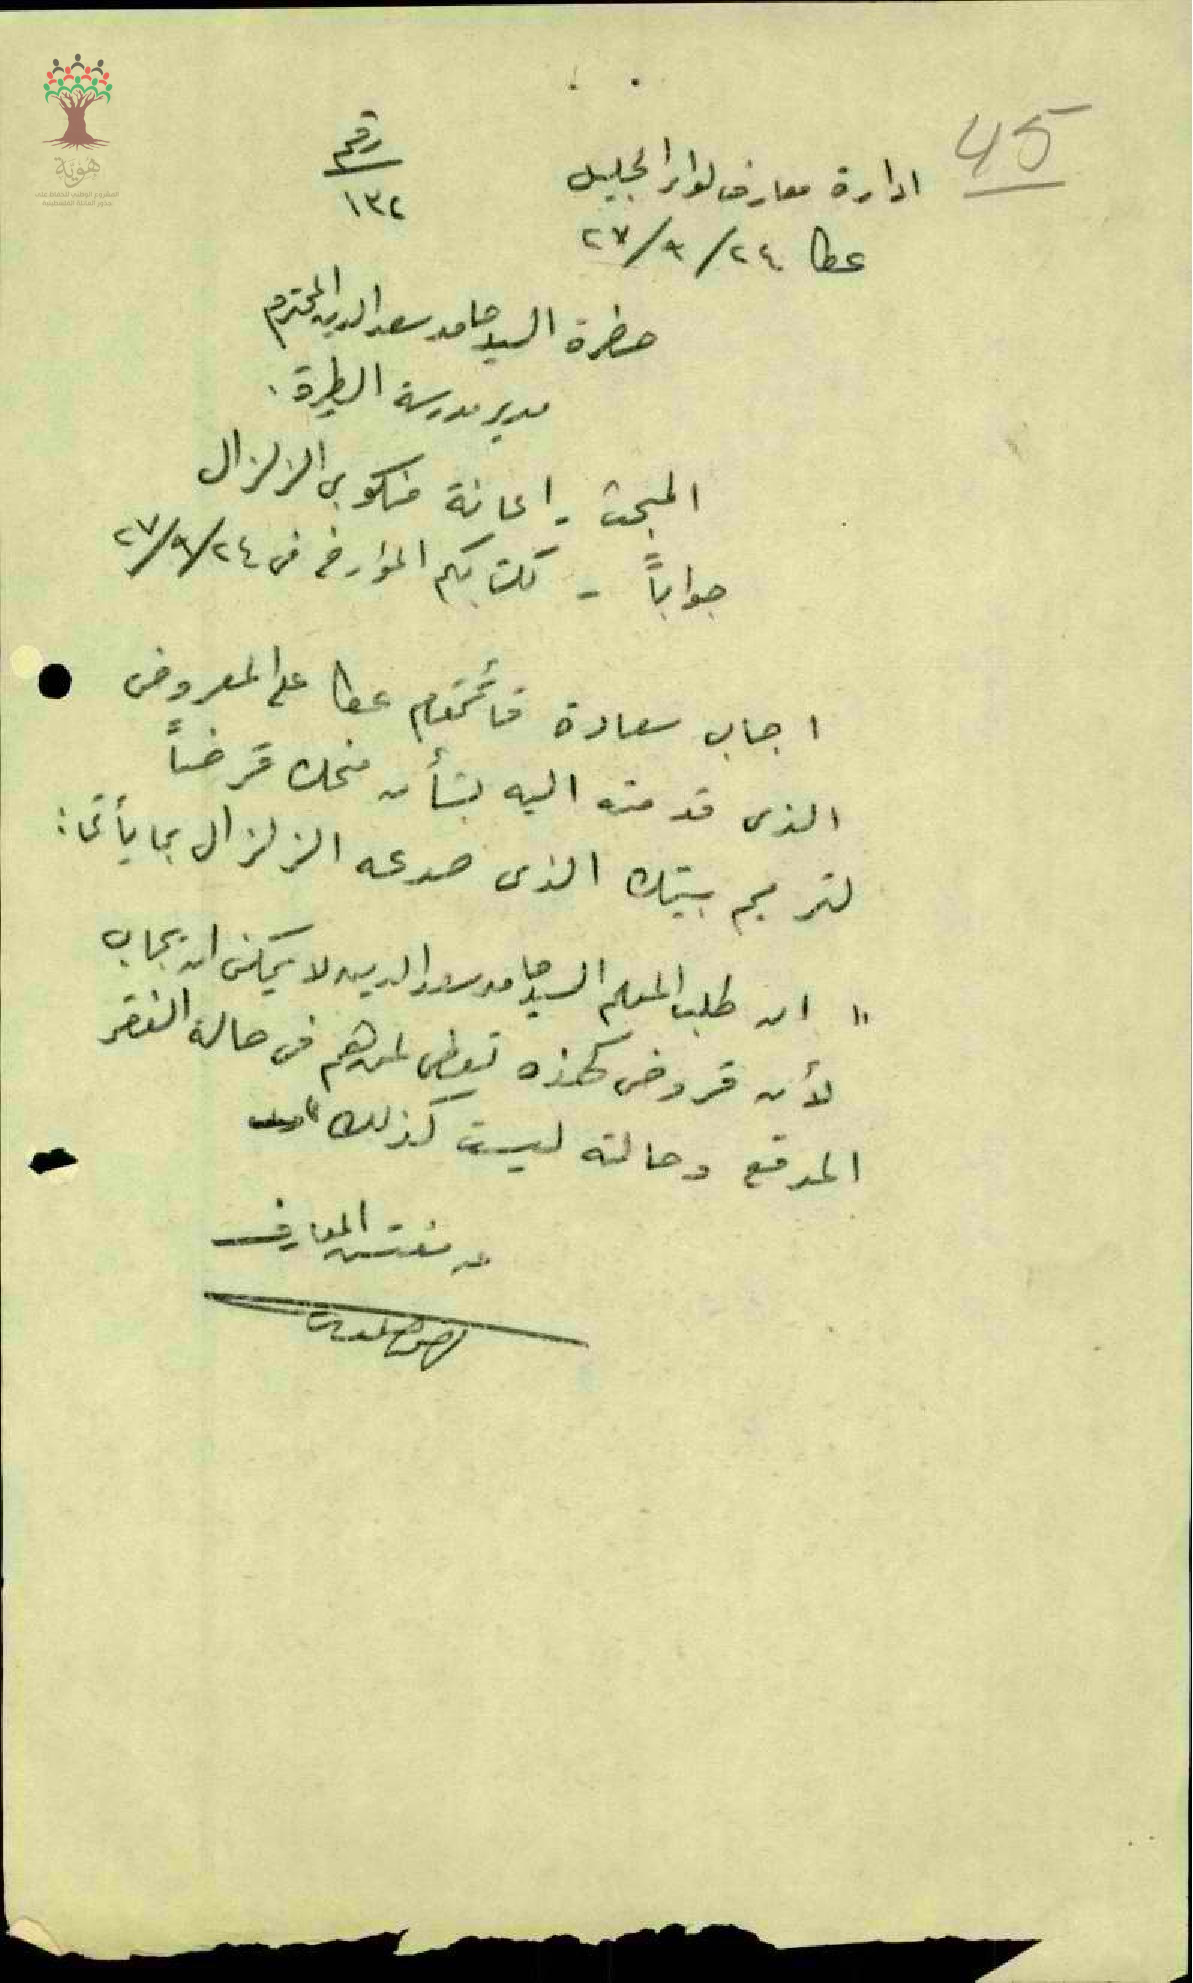 45
ادارة معارف لواء الجليل
رقم
١٣٢
عكا ٢٤/٩/٢٧
حضرة السيد حامد سعد الدين المحترم
مدير مدرسة الطيرة .
المبحث - اعانة منكوبي الزلزال
جواباً - لكتابكم المؤرخ في ٢٤/٩/٢٧
اجاب سعادة قائمقام عكا على المعروض
الذي قدمته اليه بشأن منحك قرضاً
لترميم بيتك الذي صدعه الزلزال بما يأتي :
" ان طلب المعلم السيد حامد سعد الدين لا يمكن ان يجاب
لأن قروض كهذه تعطى لمن هم في حالة الفقر
المدقع وحالته ليست كذلك "
عن مفتش المعارف
هوية
المشروع الوطني للحفاظ على
جذور العائلة الفلسطينية